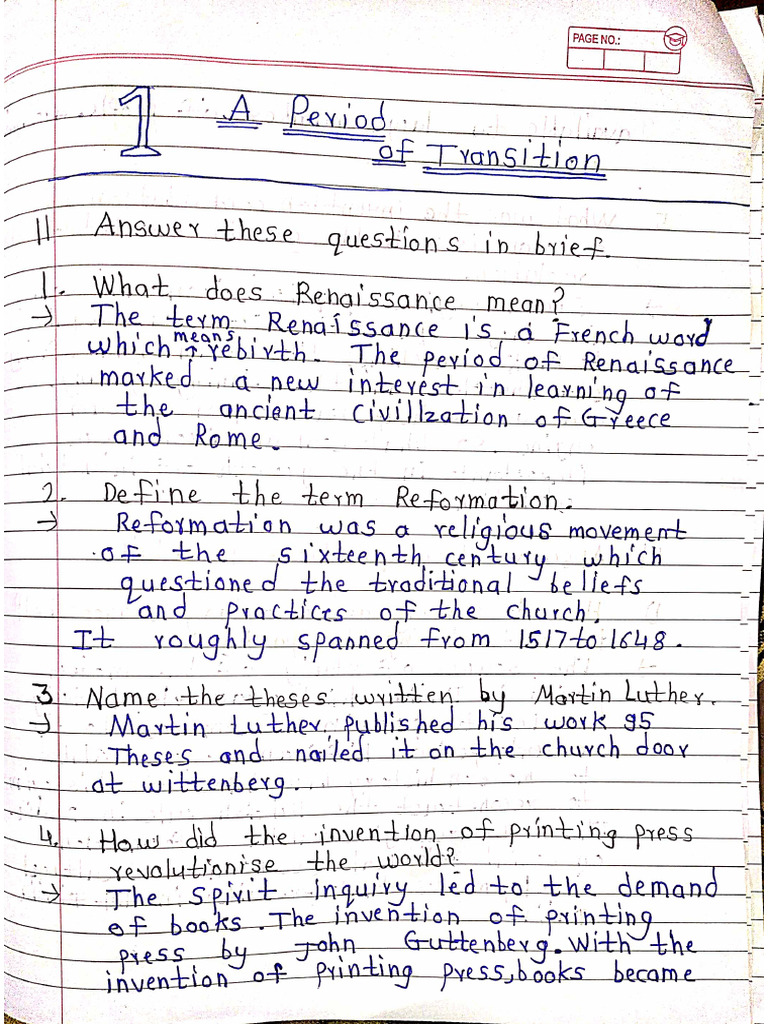 PAGE NO.:
1 A Period
of Transition
II Answer these questions in brief.
1. What does Renaissance mean?
→ The term Renaissance is a French word
which means rebirth. The period of Renaissance
marked a new interest in learning of
the ancient civilization of Greece
and Rome.
2. Define the term Reformation.
→ Reformation was a religious movement
of the sixteenth century which
questioned the traditional beliefs
and practices of the church.
It roughly spanned from 1517 to 1648.
3. Name the theses written by Martin Luther.
→ Martin Luther published his work 95
Theses and nailed it on the church door
at wittenberg.
4. How did the invention of printing press
revolutionise the world?
→ The spirit inquiry led to the demand
of books. The invention of printing
press by John Guttenberg. With the
invention of printing press, books became